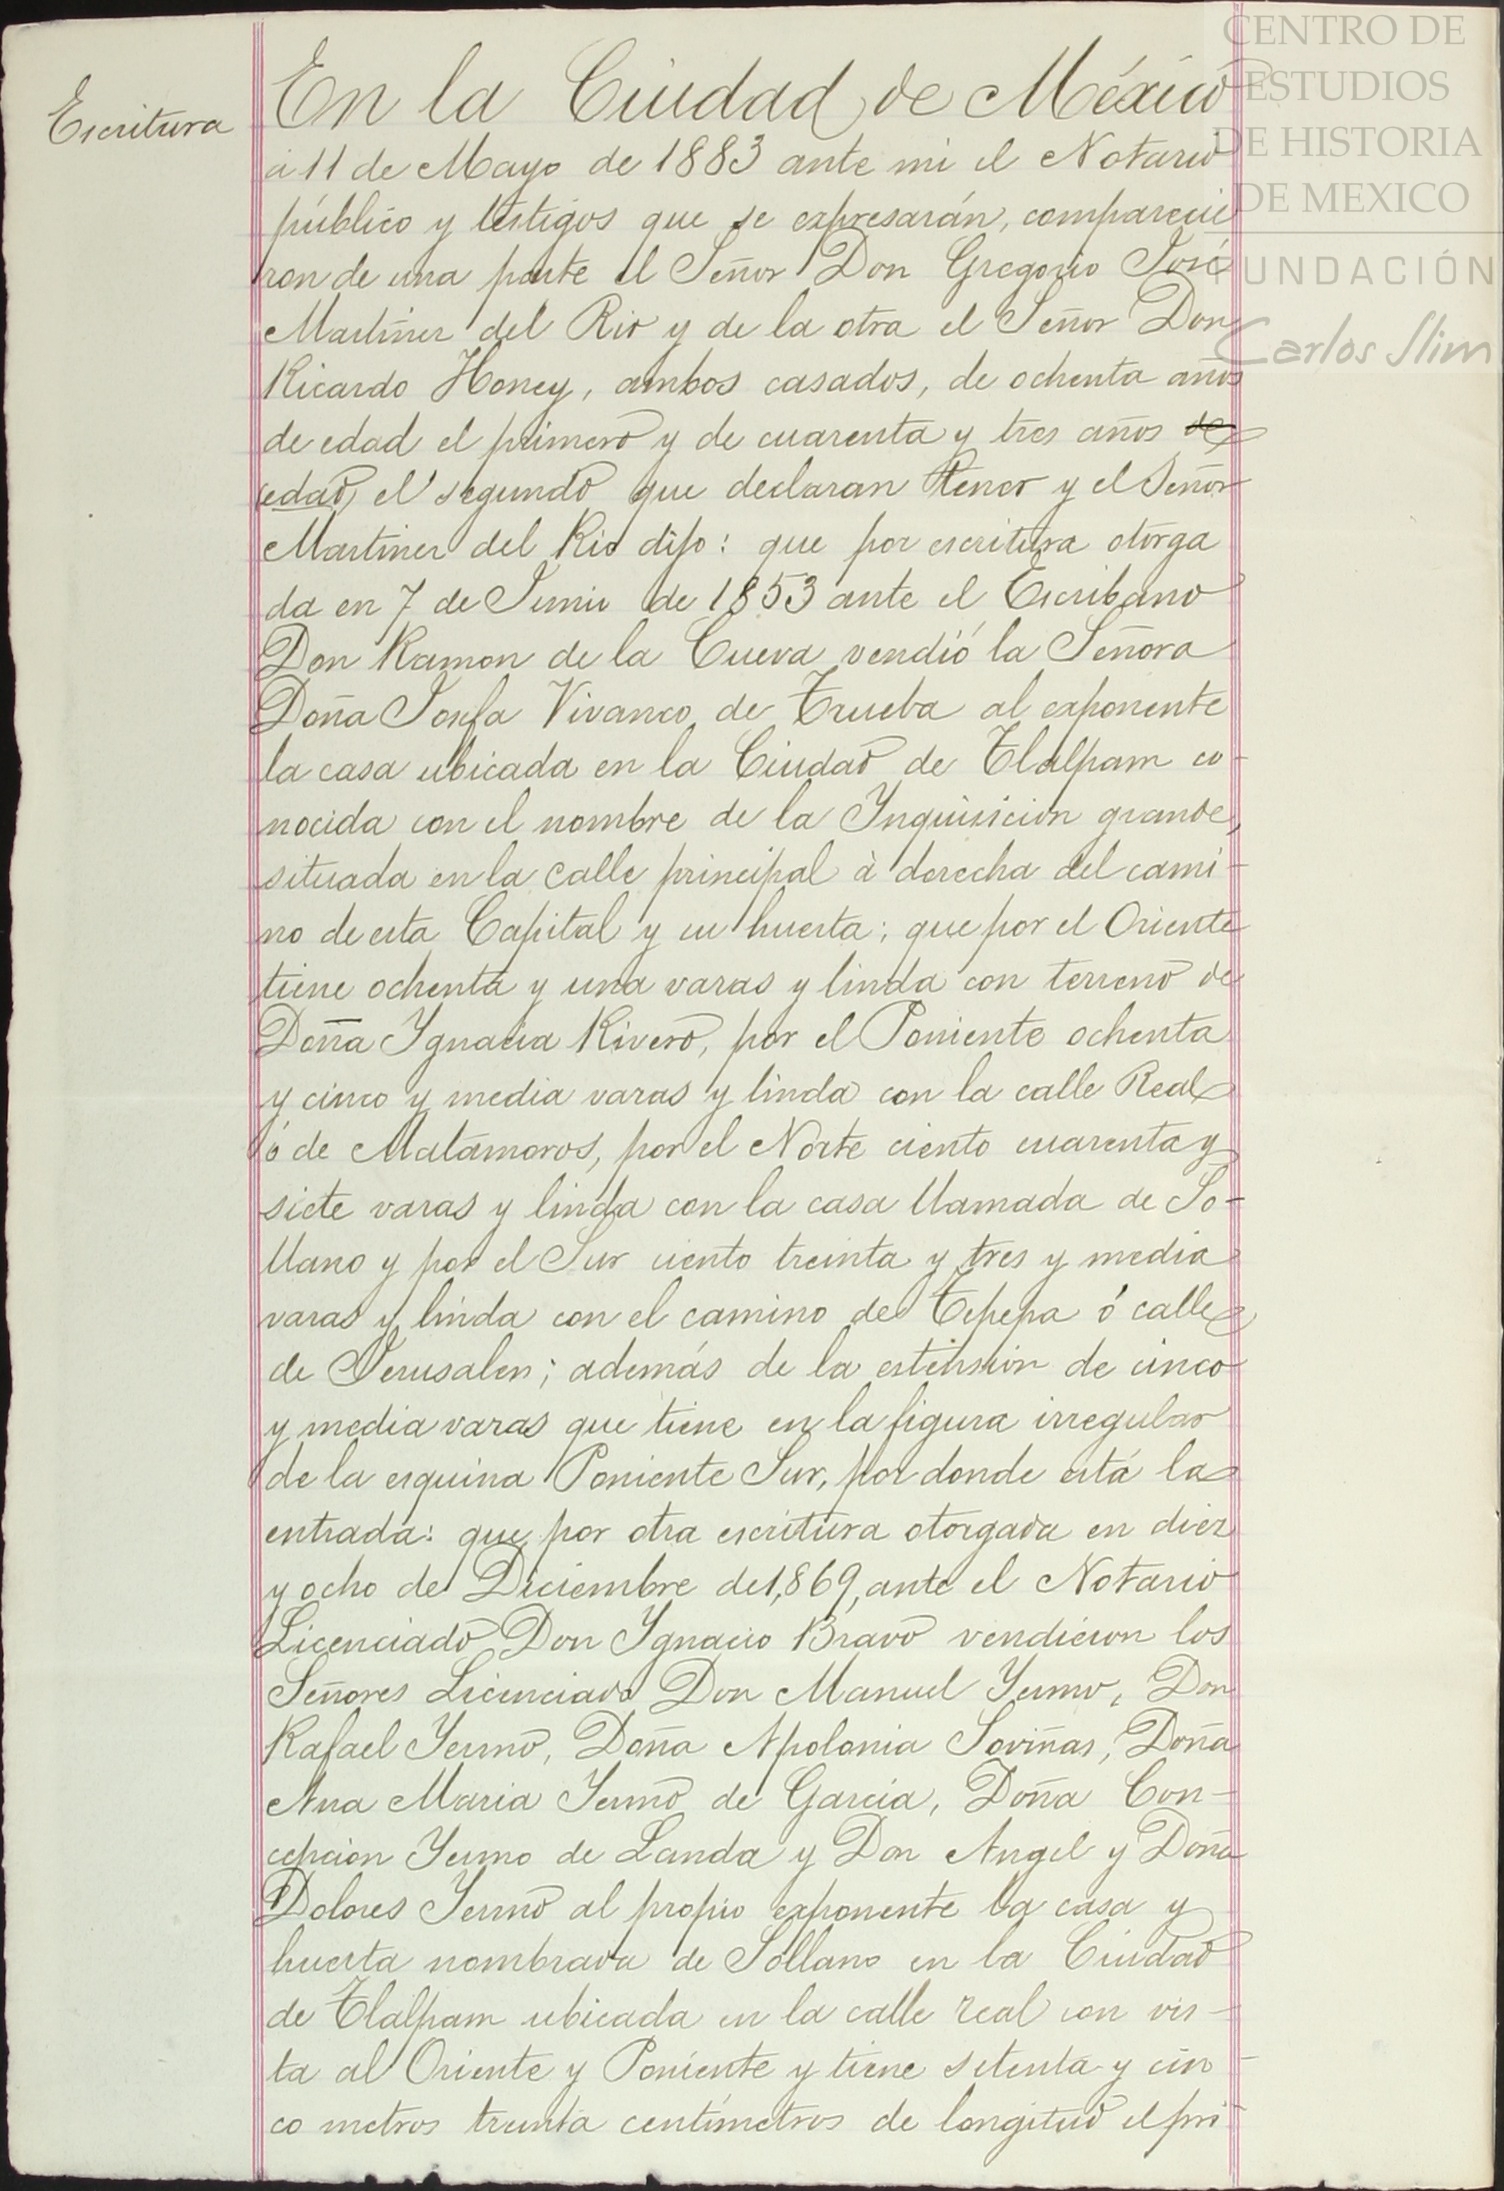 Escritura
En la Ciudad de México
á 11 de Mayo de 1883 ante mi el Notario
público y testigos que se expresarán, comparecie
ron de una parte el Señor Don Gregorio José
Martinez del Rio y de la otra el Señor Don
Ricardo Honey, ambos casados, de ochenta años
de edad el primero y de cuarenta y tres años de
edad el segundo que declaran tener y el Señor
Martinez del Rio dijo: que por escritura otorga
da en 7 de Junio de 1853 ante el Escribano
Don Ramon de la Cueva vendió la Señora
Doña Josefa Vivanco de Trueba al exponente
la casa ubicada en la Ciudad de Tlalpam co-
nocida con el nombre de la Ynquisicion grande,
situada en la calle principal á derecha del cami-
no de esta Capital y su huerta; que por el Oriente
tiene ochenta y una varas y linda con terreno de
Doña Ygnacia Rivero, por el Poniente ochenta
y cinco y media varas y linda con la calle Real
ó de Matamoros, por el Norte ciento cuarenta y
siete varas y linda con la casa llamada de So-
llano y por el Sur ciento treinta y tres y media
varas y linda con el camino de Tepepa ó calle
de Jerusalen; además de la estension de cinco
y media varas que tiene en la figura irregular
de la esquina Poniente Sur, por donde está la
entrada: que por otra escritura otorgada en diez
y ocho de Diciembre de 1,869, ante el Notario
Licenciado Don Ygnacio Bravo vendieron los
Señores Licenciado Don Manuel Yermo, Don
Rafael Yermo, Doña Apolonia Soviñas, Doña
Ana Maria Yermo de Garcia, Doña Con-
cepcion Yermo de Landa y Don Angel y Doña
Dolores Yermo al propio exponente la casa y
huerta nombrada de Sollano en la Ciudad
de Tlalpam ubicada en la calle real con vis-
ta al Oriente y Poniente y tiene setenta y cin-
co metros treinta centímetros de longitud el pri-
CENTRO DE
ESTUDIOS
DE HISTORIA
DE MEXICO
FUNDACIÓN
Carlos Slim